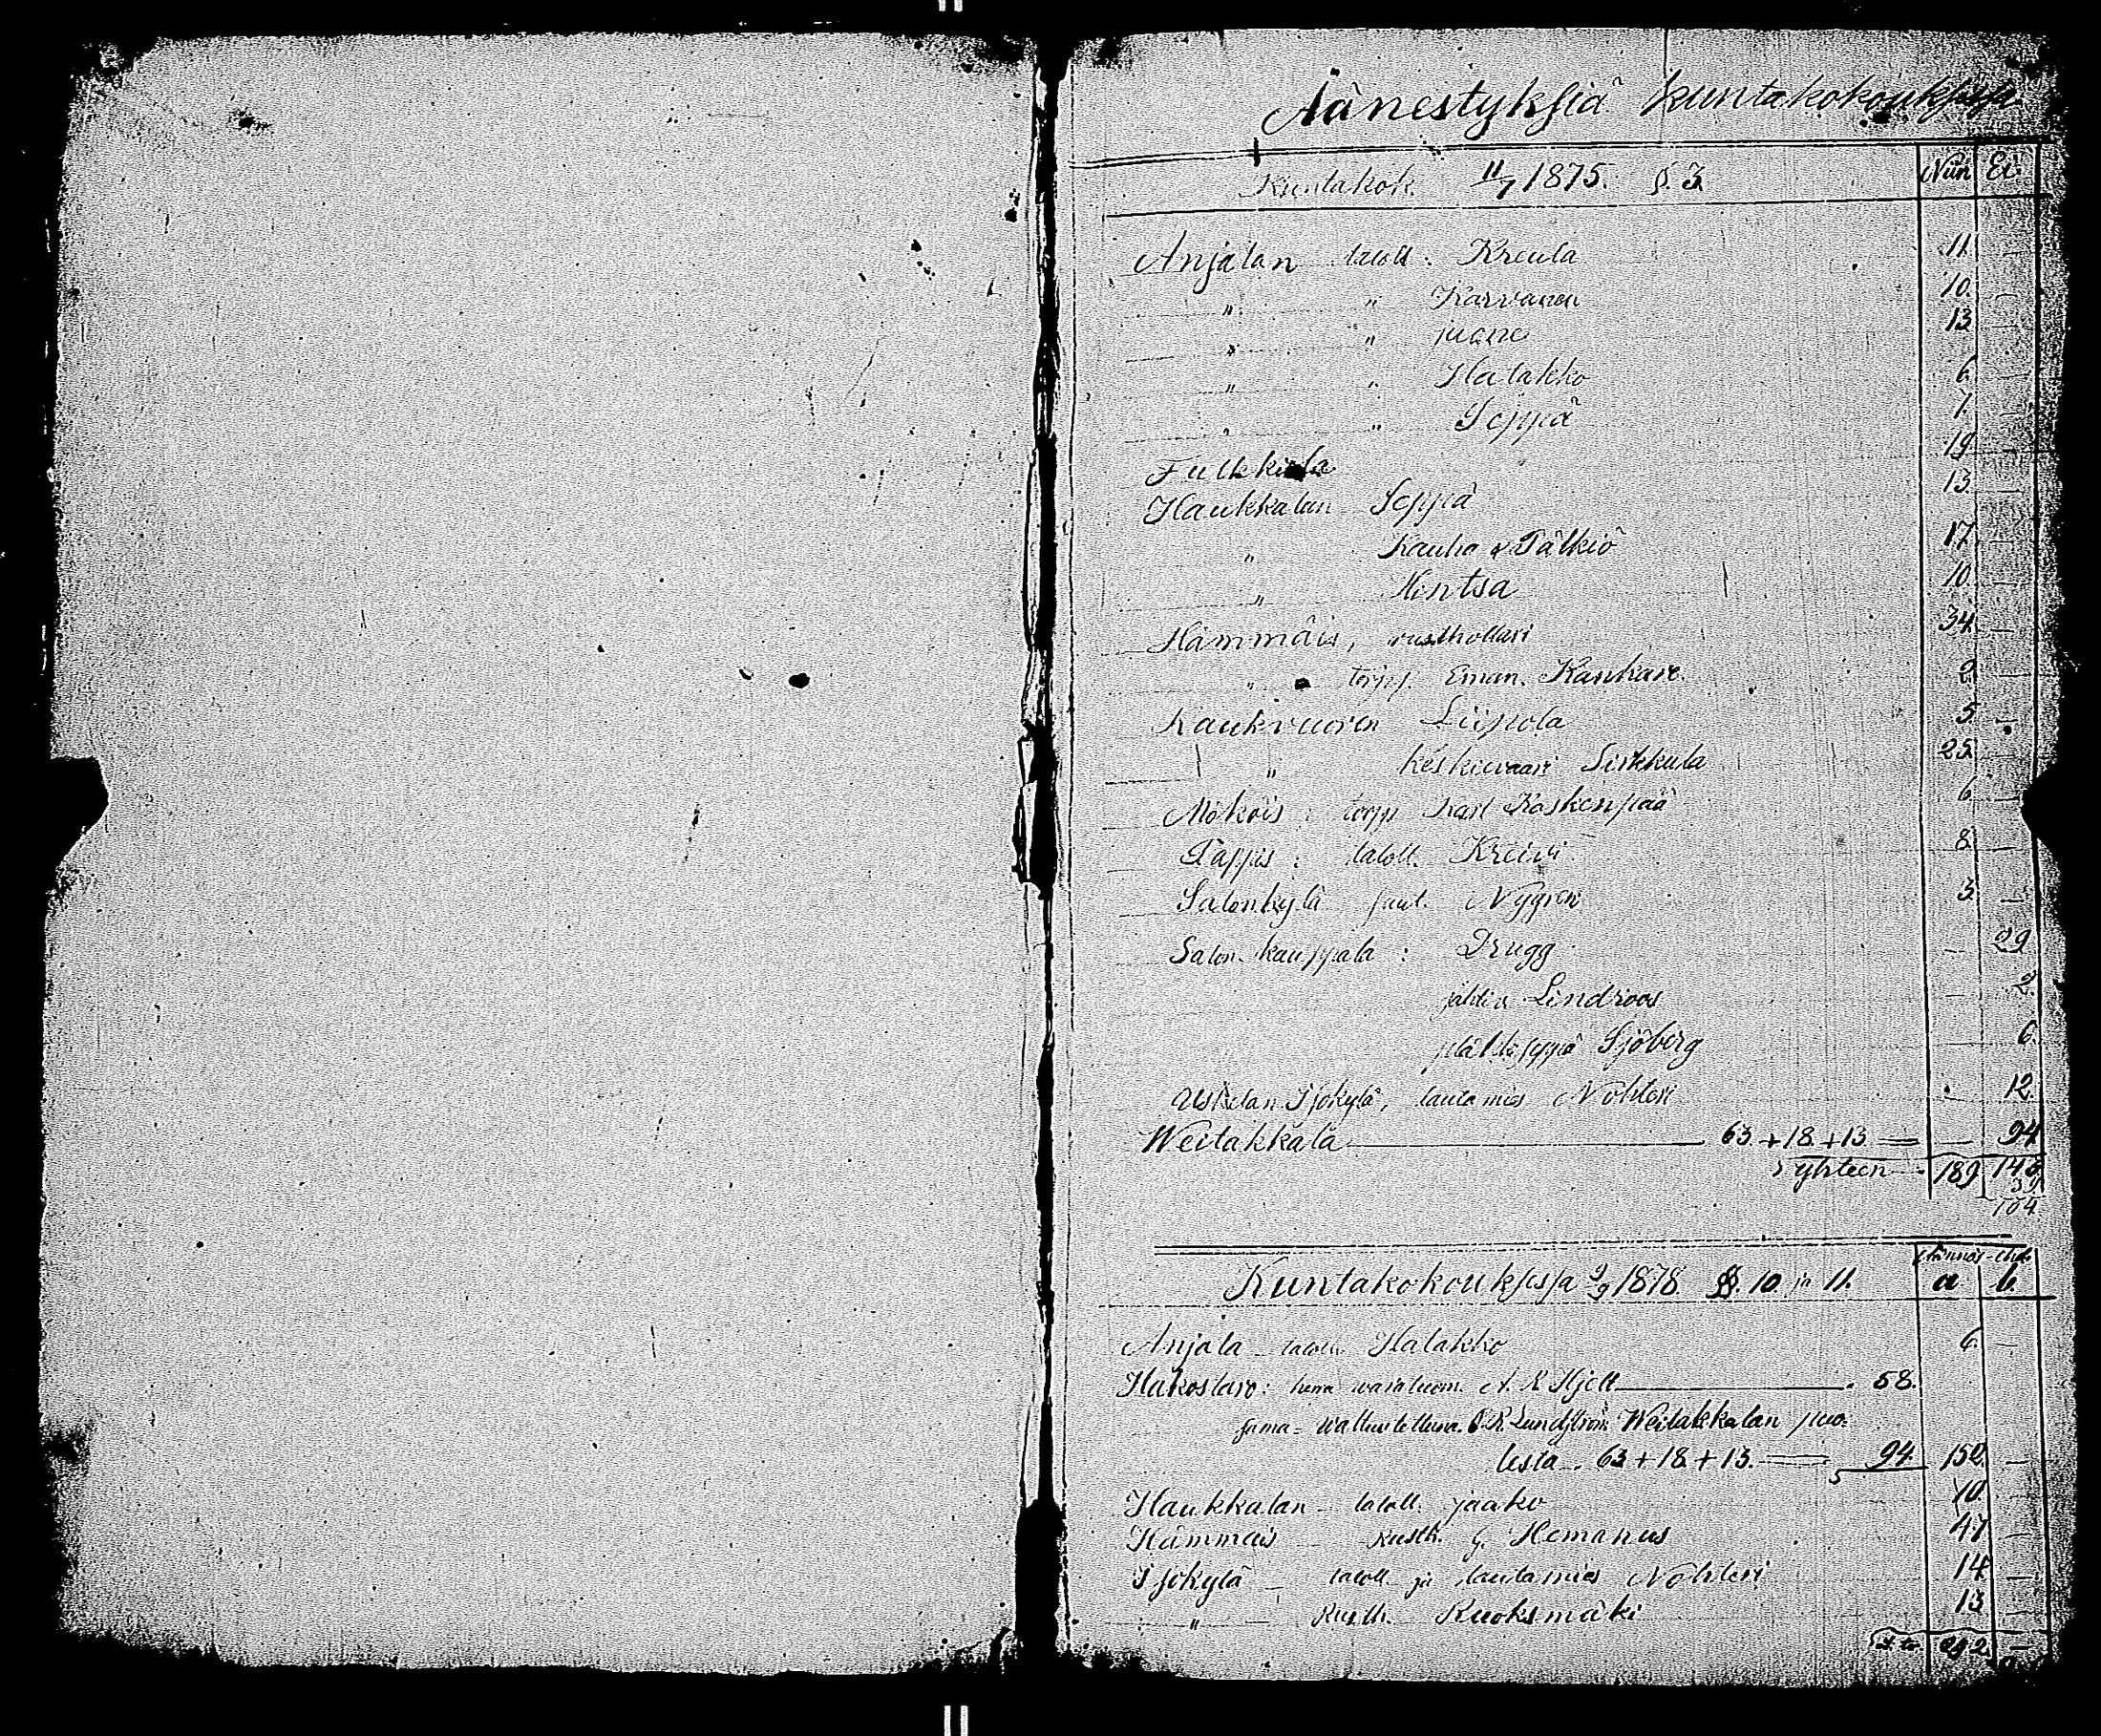 Äänestyksiä kuntakokouksissa
Kuntakok. 11/7 1875. §. 3. Niin Ei.
Anjalan taloll. Kreula 11. —
" " Karvanen 10. —
" " Juane 13 —
" " Hatakko 6. —
" " Seppä 7. —
Fulkkila 19. —
Haukkalan Seppä 13. —
" Kauho & Pälkiö 17. —
" Hintsa 10. —
Hämmäis, rusthollari 34. —
" torpp. Eman. Kankare. 2. —
Kaukvuoren Liipola 5. —
" keskievaari Sirkkula 25. —
Mököis : torpp Karl Koskenpää 6. —
Pappis : taloll. Kreivi 8. —
Salonkylä Nygren 3. —
Salon kauppala : Drugg — 29
Lindroos — 2.
Sjöberg 6.
Uskelan Isokylä, lautamies Nohteri 12.
Weitakkala 63 + 18 + 13 — 94
yhteen 189 148
39
104
Kuntakokouksissa 2/9 1878. §§. 10 ja 11. a b.
Anjala — taloll. Hatakko 6. —
Hakostaro : herra varatuom. A. R. Hjelt 58.
sama = waltuutettuna. Lundström Weitakkalan puo:
lesta . 63 + 18 + 13. 94. 152. —
Haukkalan — taloll. Jaako 10. —
Hämmäis — Rusth. G. Hemanus 47 —
Isokylä — taloll. ja lautamies Nohteri 14 —
" — Rusth. Ruoksmäki 13 —
242 —